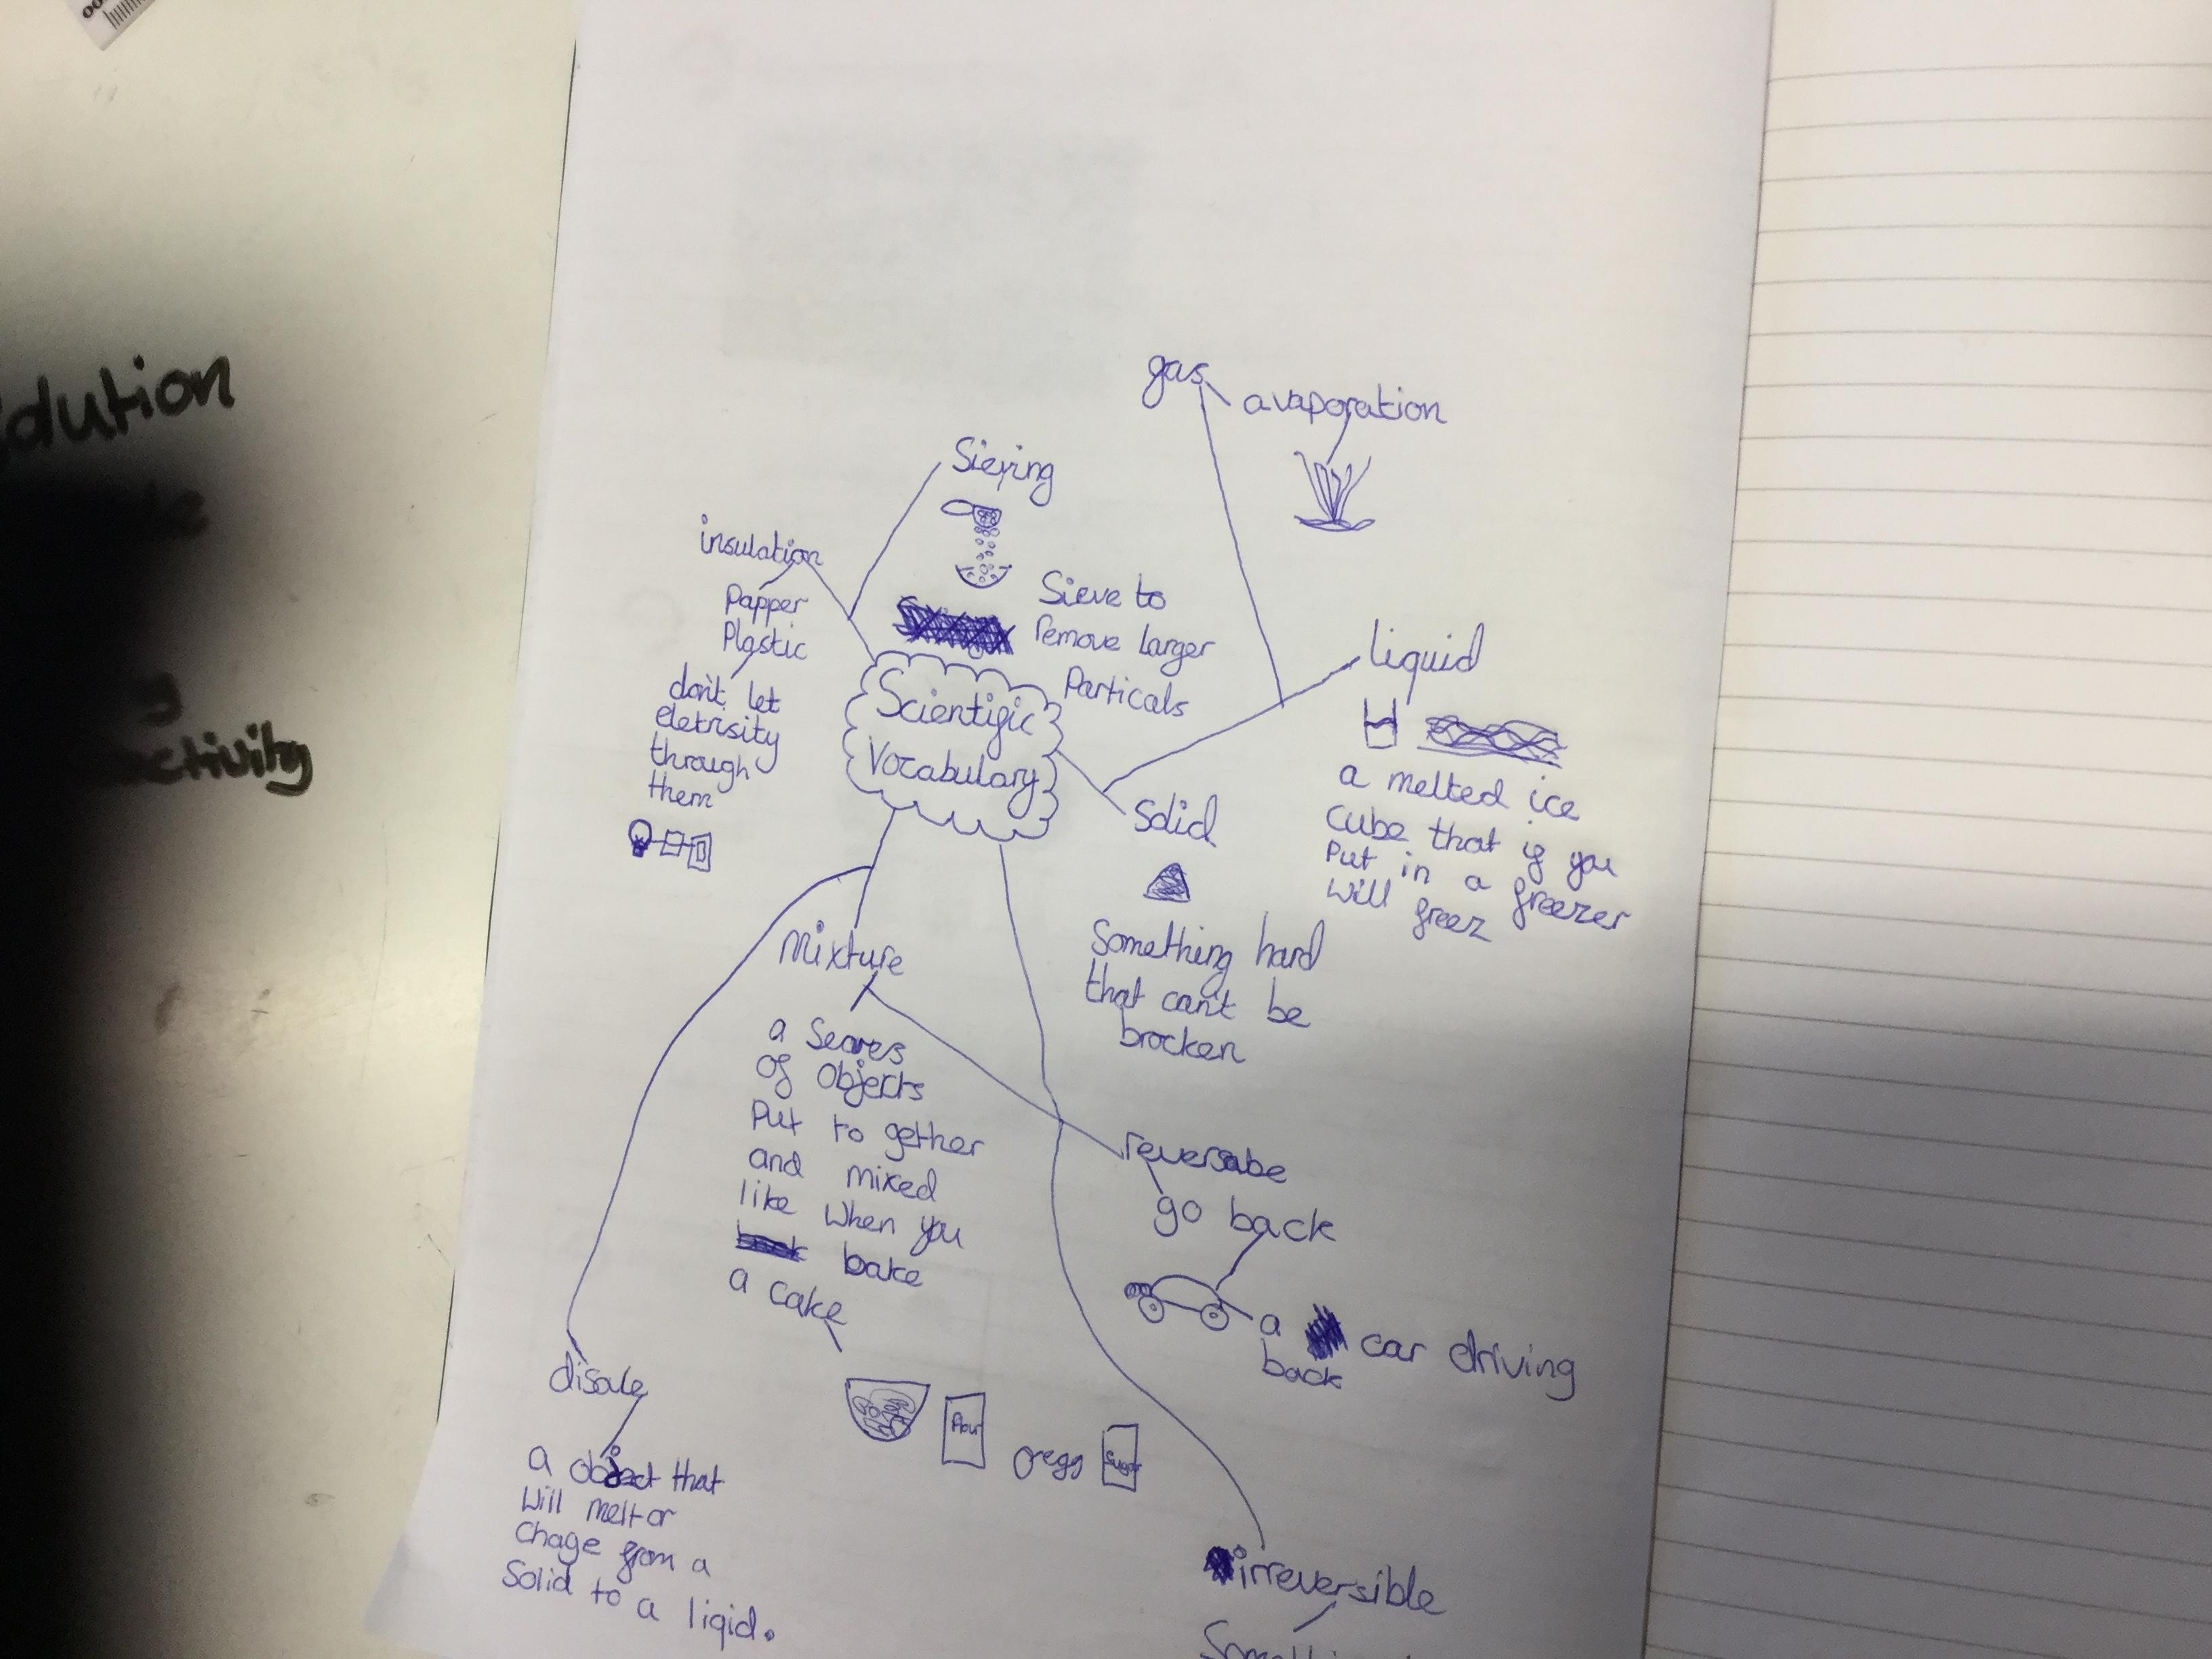 gas
avaporation
Sieving
insulation
Papper
Plastic
don't let
eletrisity
through
them
Sieve to
remove larger
Particals
Scientific
Vocabulary
liquid
a melted ice
cube that if you
Put in a freezer
will freez
Solid
Something hard
that can't be
brocken
Mixture
a Seares
of objects
Put to gether
and mixed
like when you
bake
a cake
Flour
eggs
Sugar
reversabe
go back
a car driving
back
disole
a object that
will melt or
Chage from a
Solid to a liqid.
irreversible